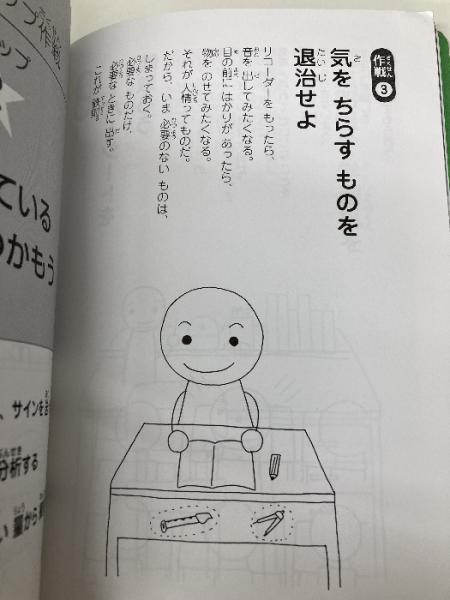 作戦3
気を ちらす ものを
退治せよ
リコーダーを もったら、
音を 出してみたくなる。
目の前に はかりが あったら、
物を のせてみたくなる。
それが 人情ってものだ。
だから、いま 必要のない ものは、
しまっておく。
必要な ものだけ、
必要な ときに 出す。
これが 鉄則。
作戦
ップ
ている
つかもう
、サインを
分析する
い 量から